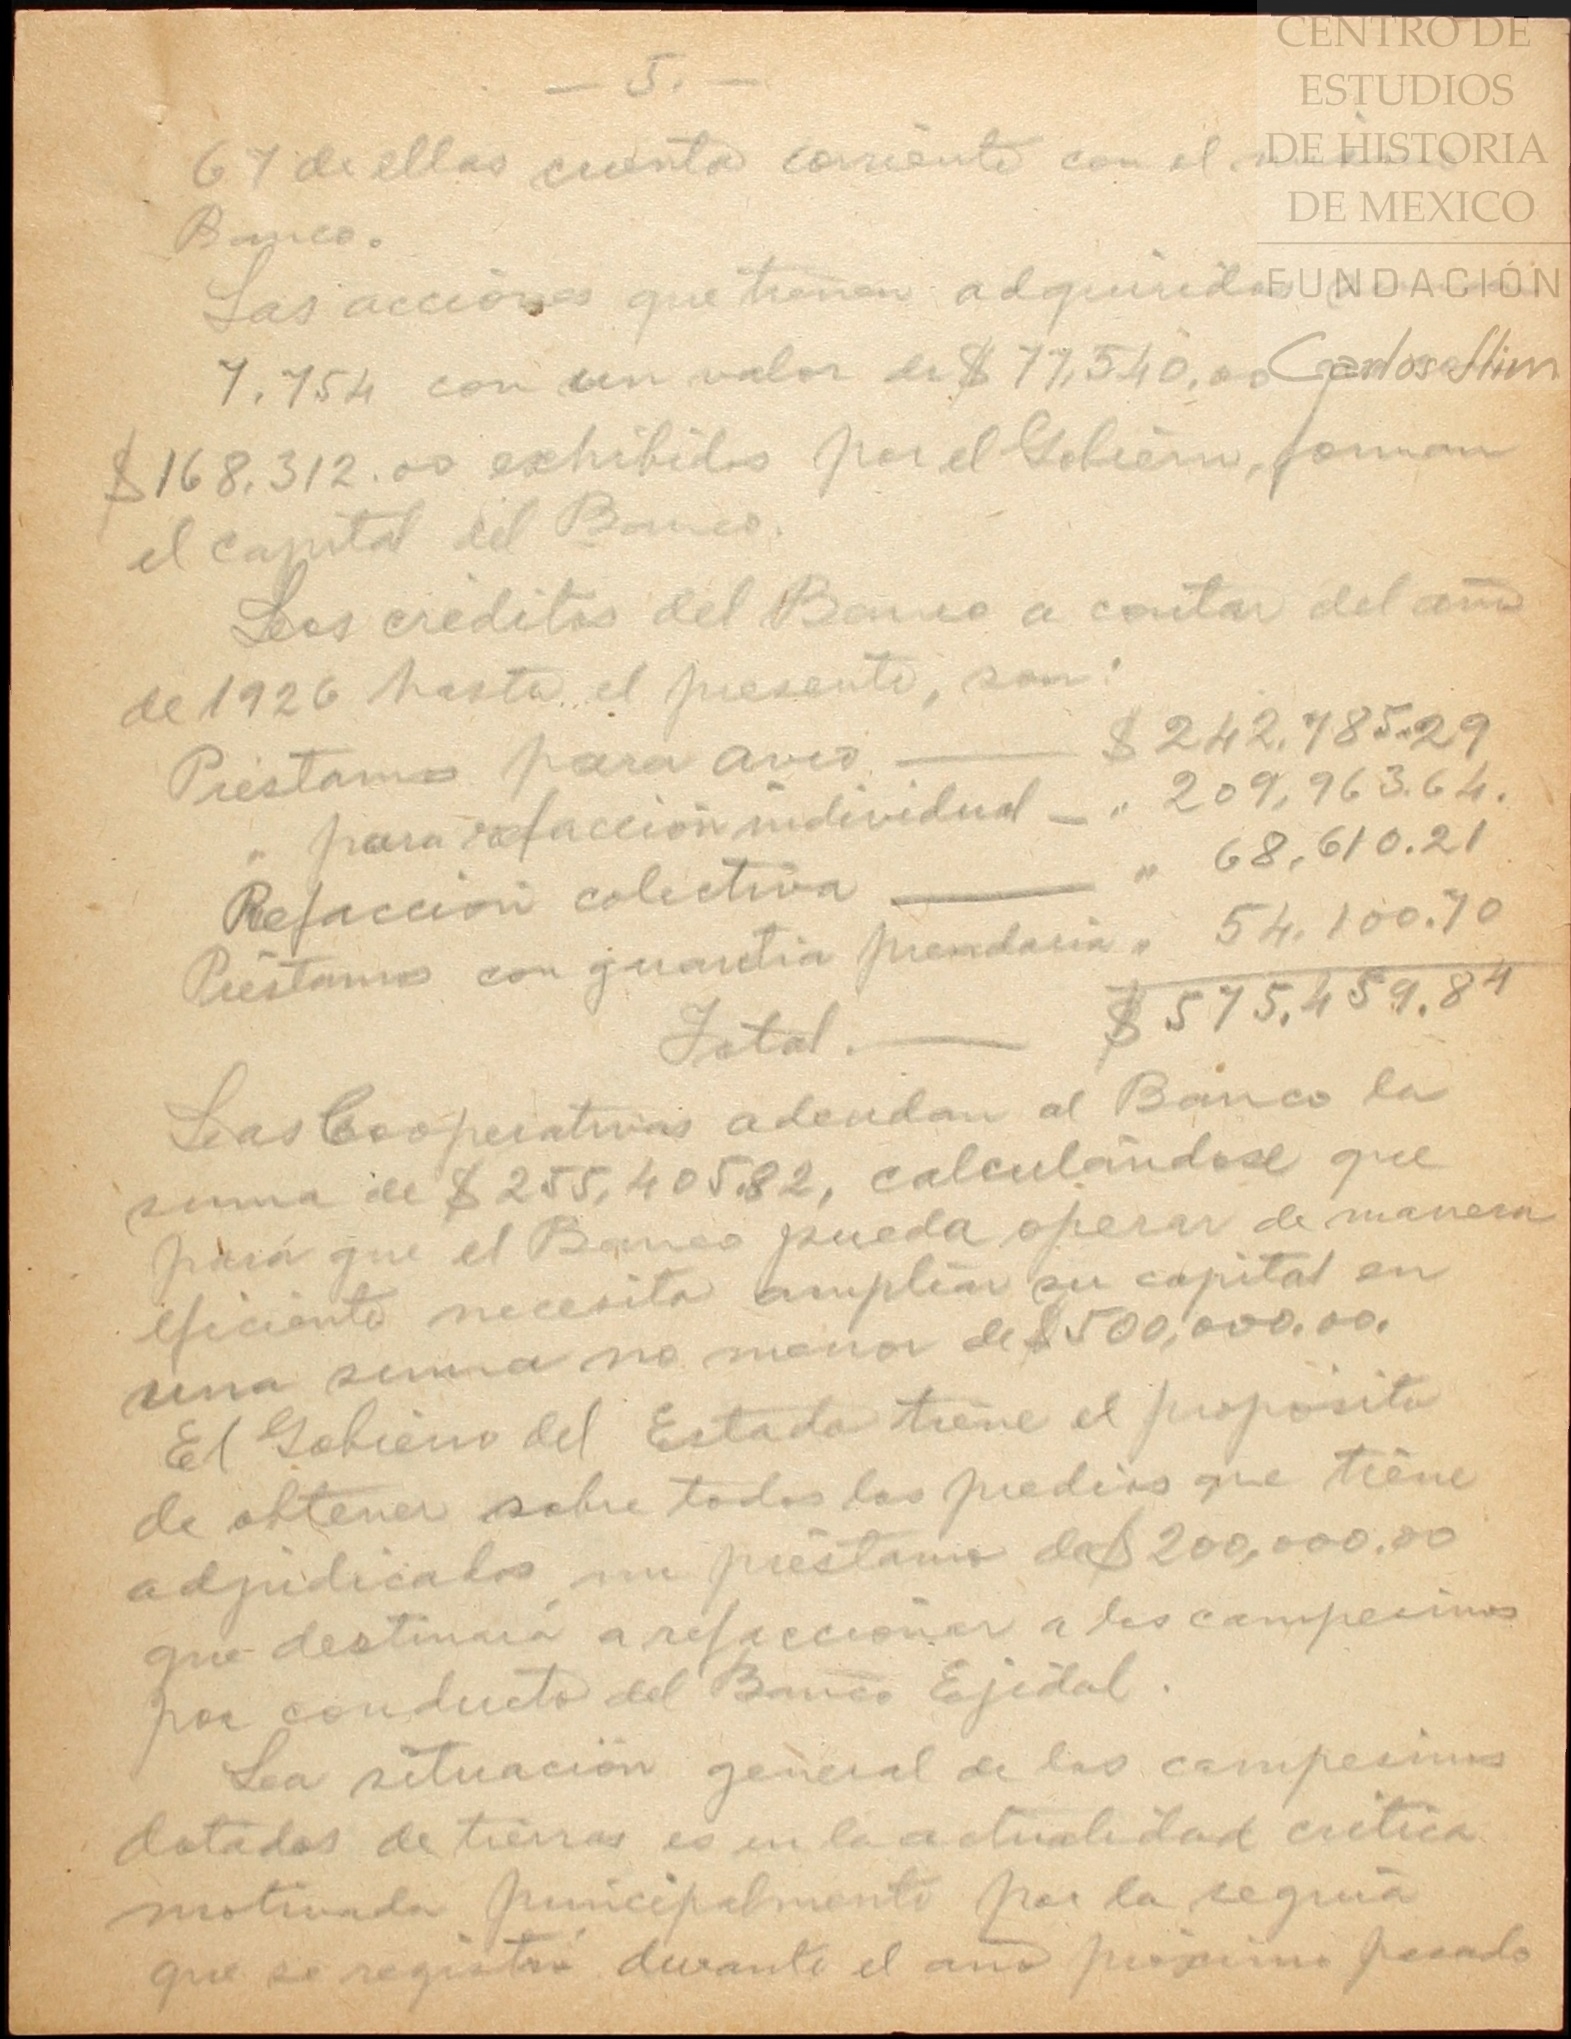 CENTRO DE
ESTUDIOS
DE HISTORIA
DE MEXICO
FUNDACIÓN
Carlos Slim
— 5. —
67 de ellas cuenta corriente con el
Banco.
Las acciones que tienen adquiridas
7.754 con un valor de $77,540.00
$168,312.00 exhibidos por el Gobierno, forman
el capital del Banco.
Los créditos del Banco a contar del año
de 1926 hasta el presente, son:
Préstamos para avío — $242,785.29
" para refacción individual — " 209,963.64.
Refacción colectiva — " 68,610.21
Préstamos con garantia prendaria " 54.100.70
Total. — $575,459.84
Las Cooperativas adeudan al Banco la
suma de $255,405.82, calculándose que
para que el Banco pueda operar de manera
eficiente necesita ampliar su capital en
una suma no menor de $500,000.00.
El Gobierno del Estado tiene el propósito
de obtener sobre todos los predios que tiene
adjudicados un préstamo de $200,000.00
que destinará a refaccionar a los campesinos
por conducto del Banco Ejidal.
La situación general de los campesinos
dotados de tierras es en la actualidad critica
motivada principalmente por la sequia
que se registró durante el año próximo pasado